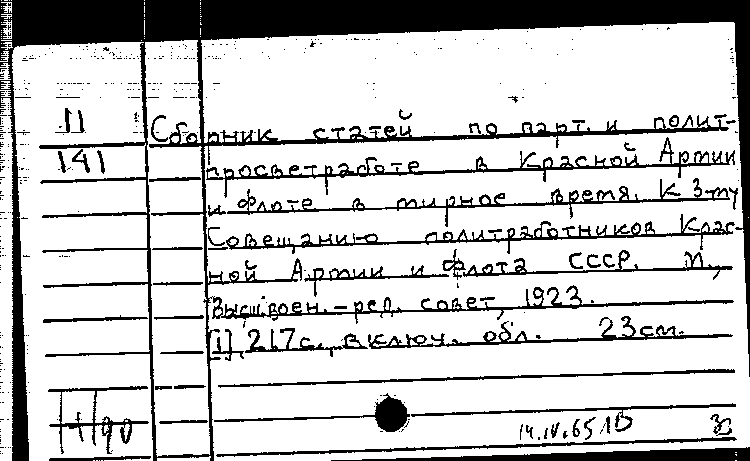 11 Сборник статей по парт. и полит-
141 просветработе в Красной Армии
и Флоте в мирное время. К 3-му
Совещанию политработников Крас-
ной Армии и Флота СССР. М.,
Высш. воен.-ред. совет, 1923.
[1], 217 с., включ. обл. 23 см.
14.IV.65